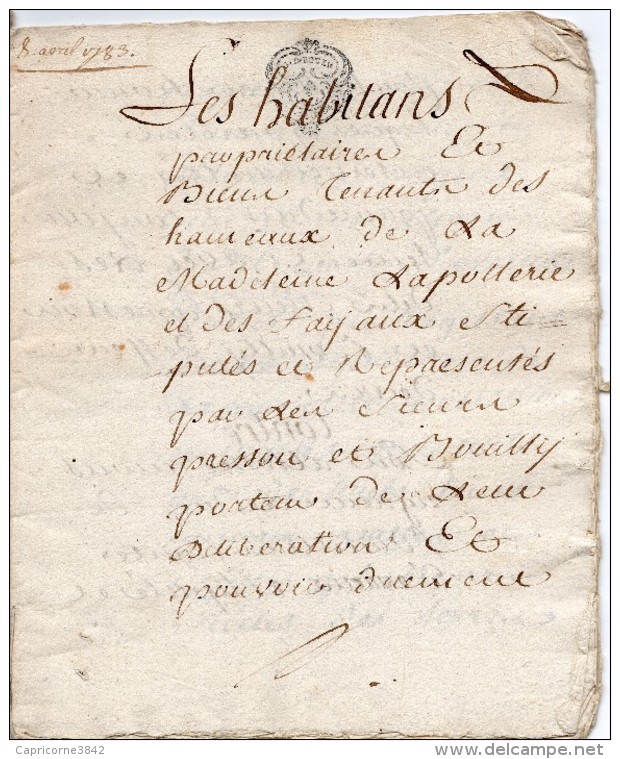 8. avril 1783.
Les habitans
propriétaires Et
Bieux Tenants des
hameaux de La
Madeleine Lapotterie
et des Fayaux sti
pulés et Representés
par Les Sieurs
pressou et Bouilly
porteur de Leur
Deliberation Et
pouvoir duement
Capricorne3842
www.delcampe.net